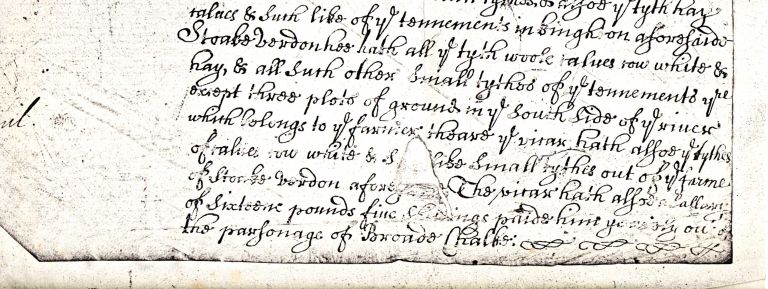 tythes & alsoe yᵉ tyth hay
calues & such like of yᵉ tennements in bingh on aforesaide
Stoake verdon hee hath all yᵉ tyth wooll calues cow white &
hay, & all such other small tythes of yᵉ tennements yʳᵉ
except three plots of ground in yᵉ South side of yᵉ river
which belongs to yᵉ farmer, theare yᵉ vicar hath alsoe yᵉ tythes
of calues cow white & like small tythes out of yᵉ farme
of Stocke verdon afore The vicar hath alsoe a sallari
of Sixteene pounds five paide him out of
the parsonage of Broade Chalke: